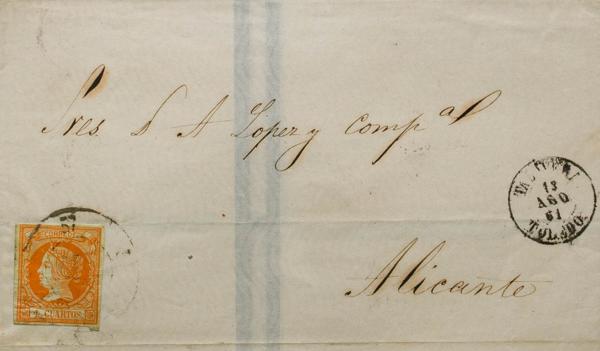 Sres D A Lopez y Compª
TALAVERA
13
AGO
61
TOLEDO.
CORREOS
4 CUARTOS
Alicante